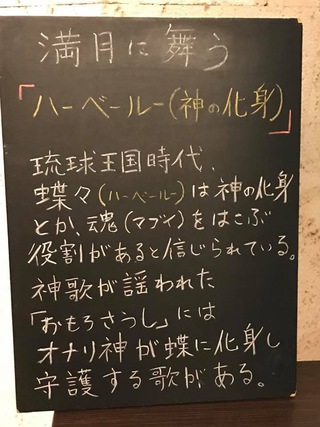 満月に舞う
「ハーベールー(神の化身)」
琉球王国時代、
蝶々(ハーベールー)は神の化身
とか、魂(マブイ)をはこぶ
役割があると信じられている。
神歌が謡われた
「おもろさうし」には
オナリ神が蝶に化身し
守護する歌がある。